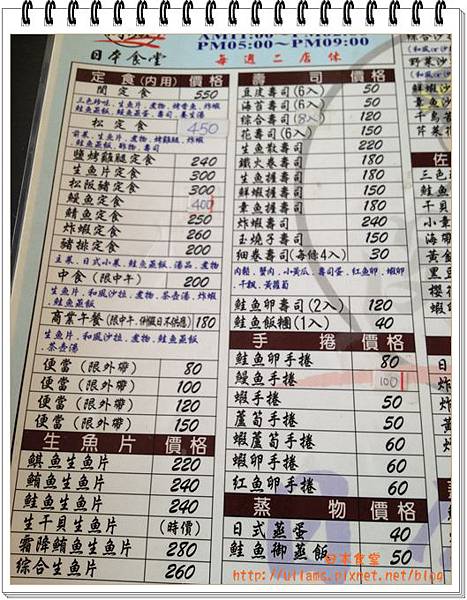 AM11:00～
PM05:00～PM09:00
日本食堂
每週二店休
定食(內用) 價格
閤定食 550
三色珍味、生魚片、煮物、烤香魚、炸蝦
鮭魚蒸飯、鮭魚蒸蛋、壽司、養生湯
松定食 450
前菜、生魚片、煮物、烤雞腿、炸蝦
鮭魚蒸飯、酢物、壽司
鹽烤雞腿定食 240
生魚片定食 300
松阪豬定食 300
鰻魚定食 400
鯖魚定食 250
炸蝦定食 260
豬排定食 200
主菜、日式小菜、鮭魚蒸飯、湯品、煮物
中食(限中午) 200
生魚片、和風沙拉、煮物、茶壺湯、炸蝦
鮭魚蒸飯
商業午餐(限中午、例假日不供應) 180
生魚片、和風沙拉、煮物、鮭魚蒸飯
茶壺湯
便當(限外帶) 80
便當(限外帶) 100
便當(限外帶) 120
便當(限外帶) 150
生魚片 價格
旗魚生魚片 220
鮪魚生魚片 240
鮭魚生魚片 240
生干貝生魚片 (時價)
霜降鮪魚生魚片 280
綜合生魚片 260
壽司 價格
豆皮壽司(6入) 50
海苔壽司(6入) 50
綜合壽司(8入) 120
花壽司(6入) 150
生魚散壽司 220
鐵火卷壽司 180
生魚握壽司 180
鮮蝦握壽司 180
章魚握壽司 180
炸蝦壽司 240
玉燒子壽司 150
細卷壽司(每條4入) 30
內餡、蟹肉、小黃瓜、壽司蛋、紅魚卵、蝦卵
、干瓢、黃蘿蔔
鮭魚卵壽司(2入) 120
鮭魚飯糰(1入) 40
手捲 價格
鮭魚卵手捲 80
鰻魚手捲 100
蝦手捲 50
蘆筍手捲 50
蝦蘆筍手捲 60
蝦卵手捲 60
紅魚卵手捲 60
蒸物 價格
日式蒸蛋 40
鮭魚御蒸飯 50
綜合沙
(和風or沙
野菜沙
(和風or沙
鮮蝦沙
章魚沙
干鳥
芹菜
佐
三色
鮭魚
干
小章
海帶
黃
黑豆
櫻花
鮭魚
日本食堂
http://uiiams.pixnet.net/blog